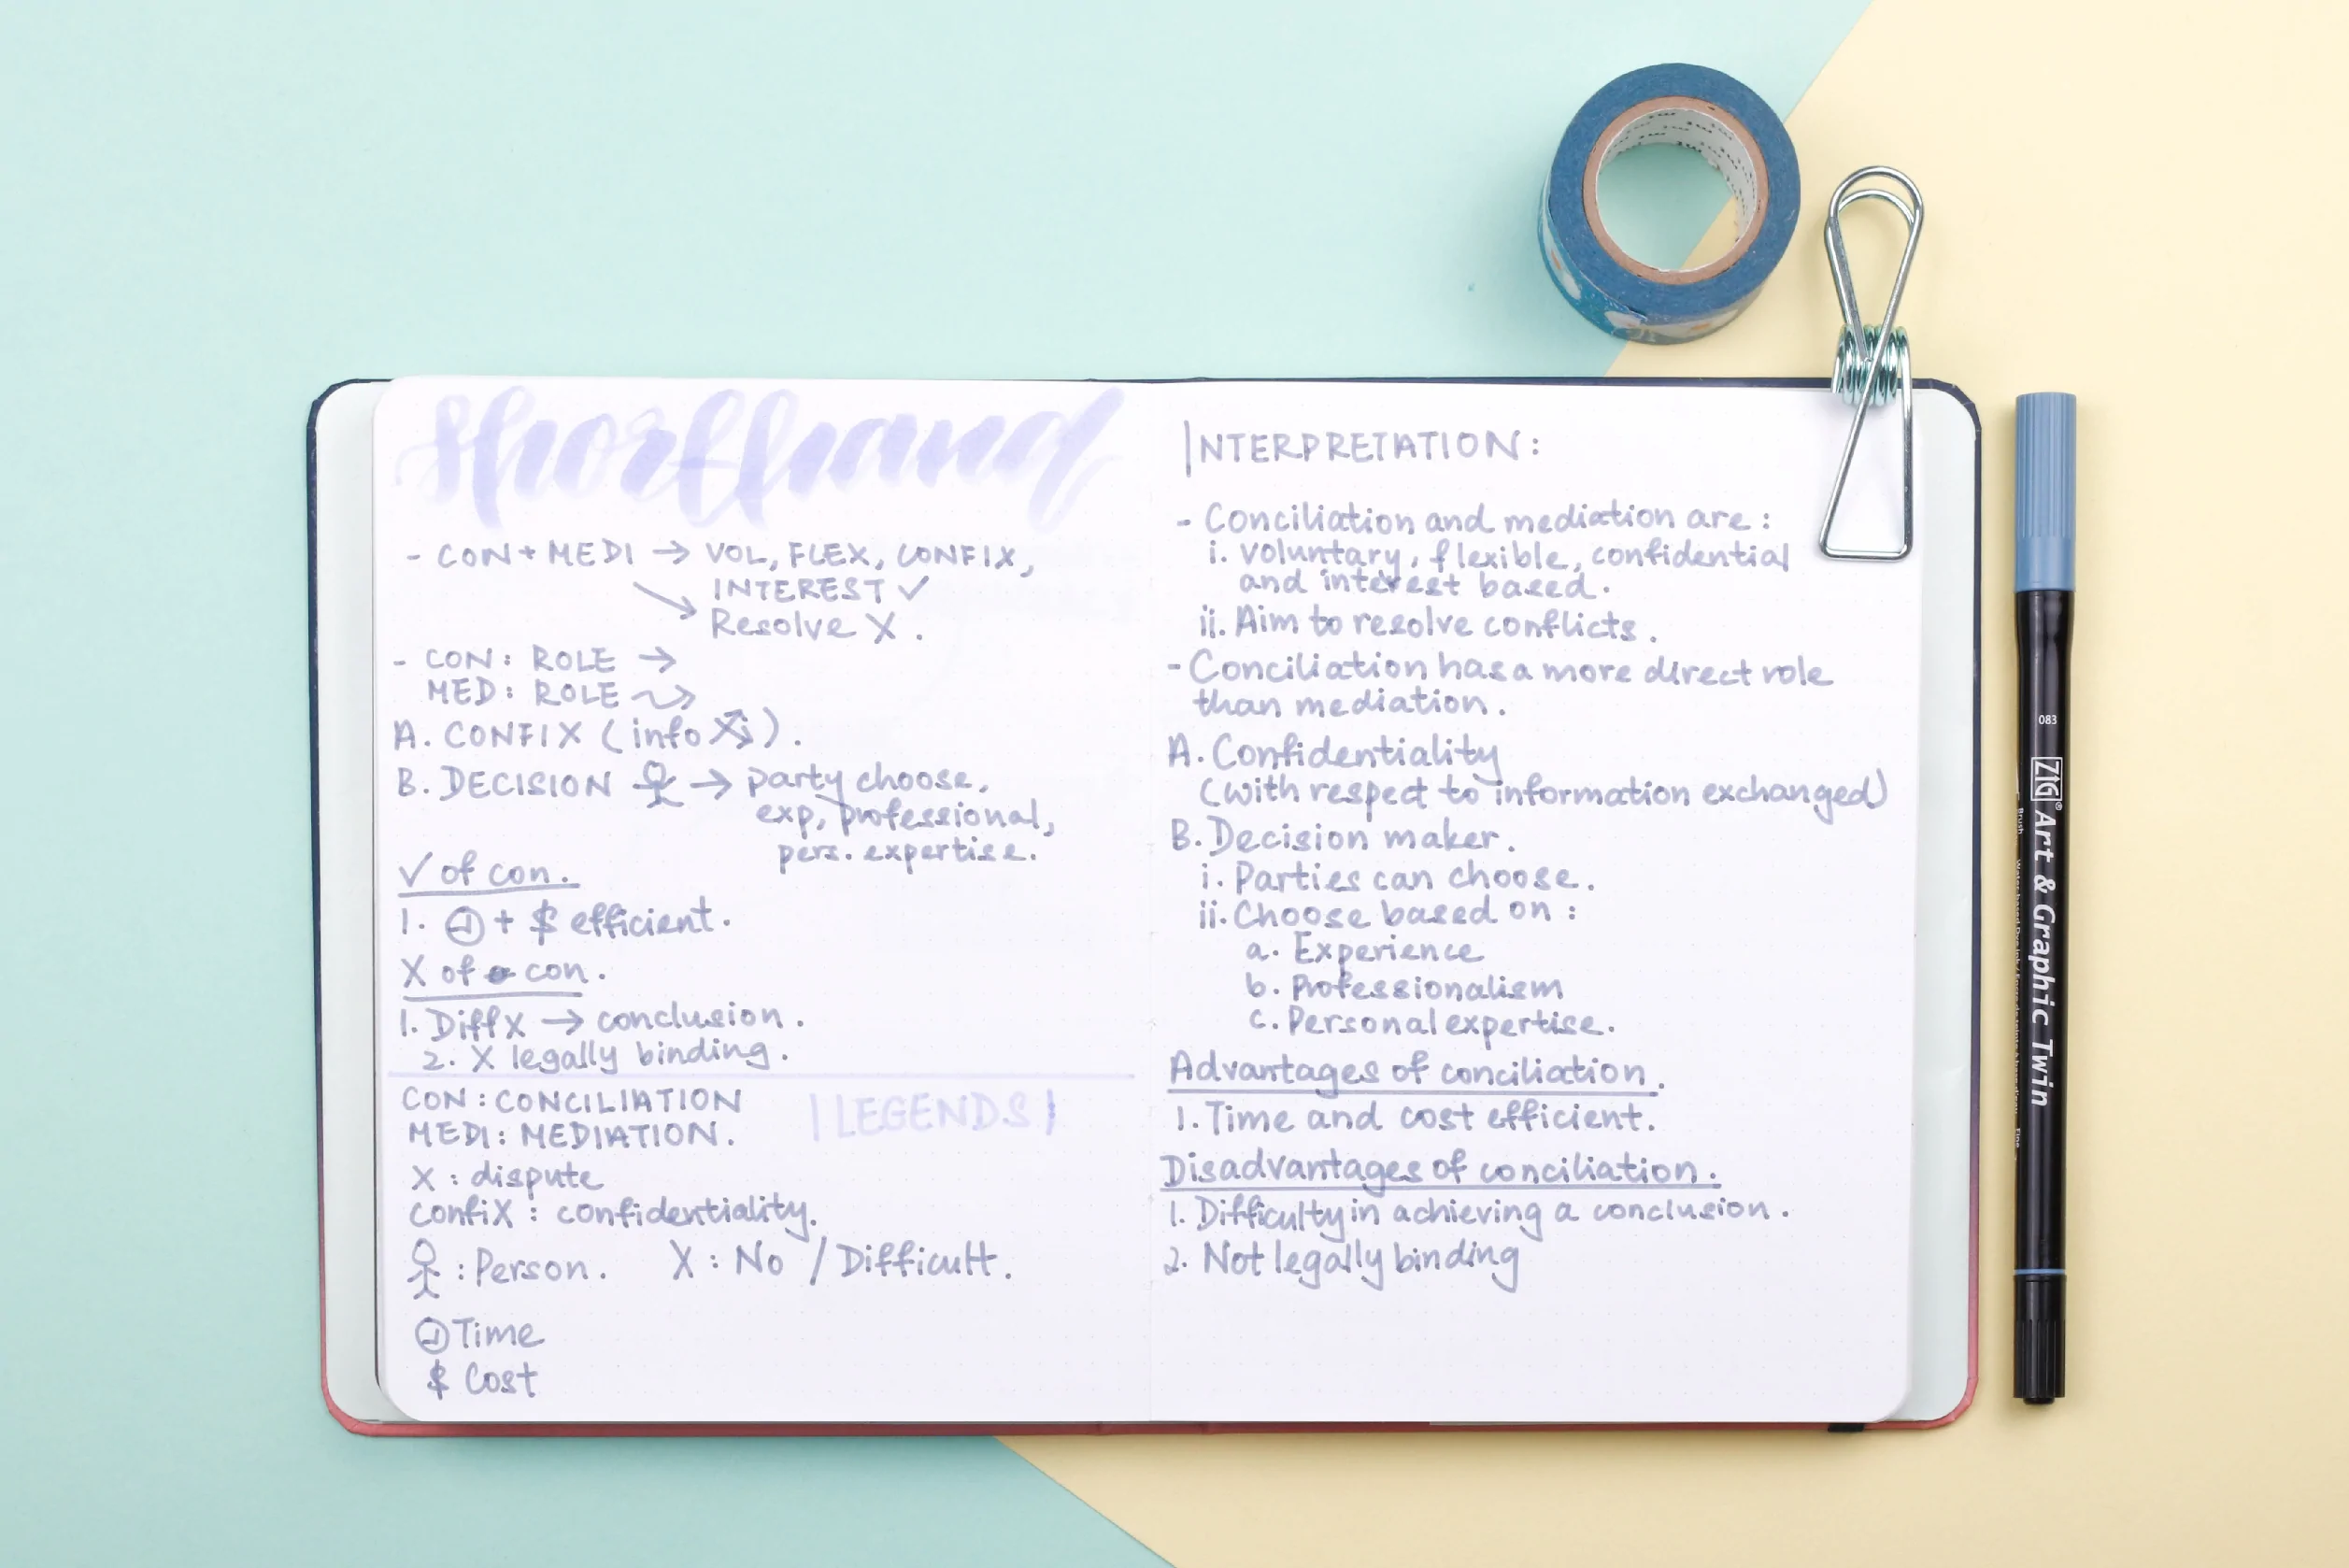 Shorthand
- CON + MEDI → VOL, FLEX, CONFIX,
INTEREST ✓
↘ Resolve X.
- CON: ROLE →
MED: ROLE ⇝
A. CONFIX (info X).
B. DECISION → party choose,
exp, professional,
pers. expertise.
✓ of con.
1. + $ efficient.
X of con.
1. Diffx → conclusion.
2. X legally binding.
CON: CONCILIATION
MEDI: MEDIATION.
| LEGENDS |
X: dispute
confiX: confidentiality.
: Person. X: No / Difficult.
Time
$ Cost
INTERPRETATION:
- Conciliation and mediation are:
i. voluntary, flexible, confidential
and interest based.
ii. Aim to resolve conflicts.
- Conciliation has a more direct role
than mediation.
A. Confidentiality
(with respect to information exchanged)
B. Decision maker.
i. Parties can choose.
ii. Choose based on:
a. Experience
b. Professionalism
c. Personal expertise.
Advantages of conciliation.
1. Time and cost efficient.
Disadvantages of conciliation.
1. Difficulty in achieving a conclusion.
2. Not legally binding
083
ZIG® Art & Graphic Twin
Brush
Fine